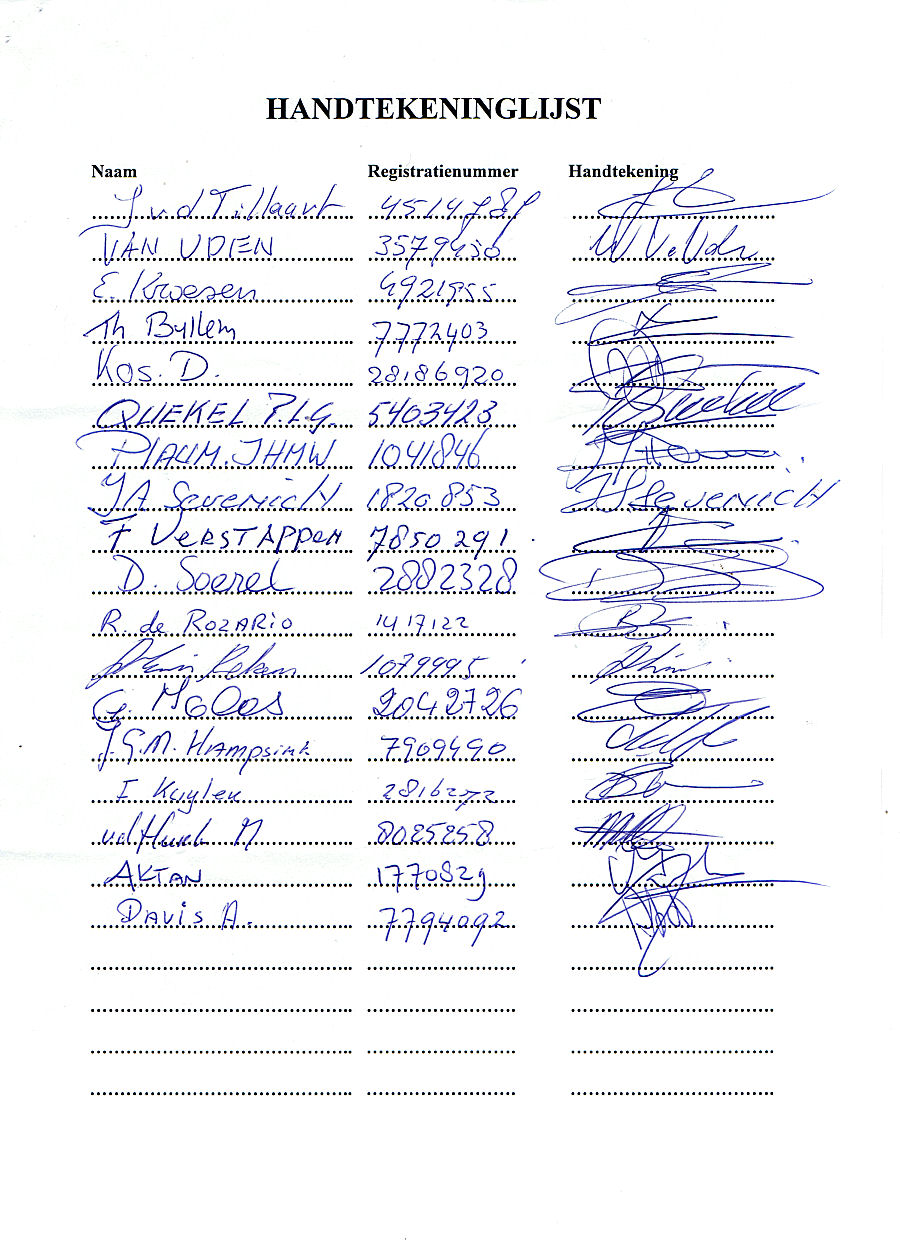 HANDTEKENINGLIJST
Naam Registratienummer Handtekening
J v d Tillaart 4514781
VAN UDEN 3579450 W V. Uden
E. Kroesen 4921955
Th Byllem 7772403
Kos. D. 28186920
QUEKEL P.L.G. 5403423 Quekel
PLAUM. JHMW 1041846
JA Sevenich 1820853 JA Sevenich
F VERSTAPPEN 7850291
D. Soerel 2882328
R. de ROZARIO 1417122
1079995
G. MGOOS 2042726
J.G.M. HAMPSINK 7909490
I Kuylen 2816272
vd M 8025258
AKTAN 1770829
DAVIS A. 7794092